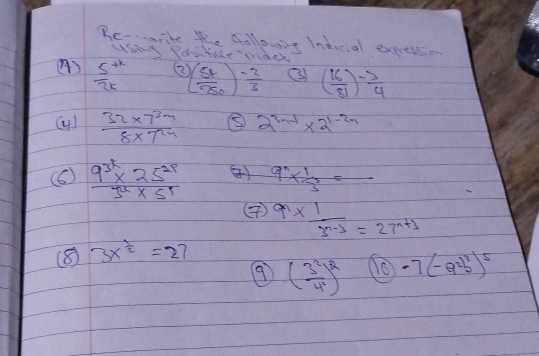 Re-write the following Indicial expression
using Positive index
(1) 5 / 2k (2) (54/250)^-2/3 (3) (16/81)^-3/4
(4) 32 × 7^3m / 8 × 7^2n (5) × 2^1-2n
(6) 9^3k × 25^2p / 3^k × 5^p 9^n × 1/3 =
(7) 9^n × 1 / 3^n-3 = 27^n+3
(8) 3x^1/2 = 27
(9) (10) -7